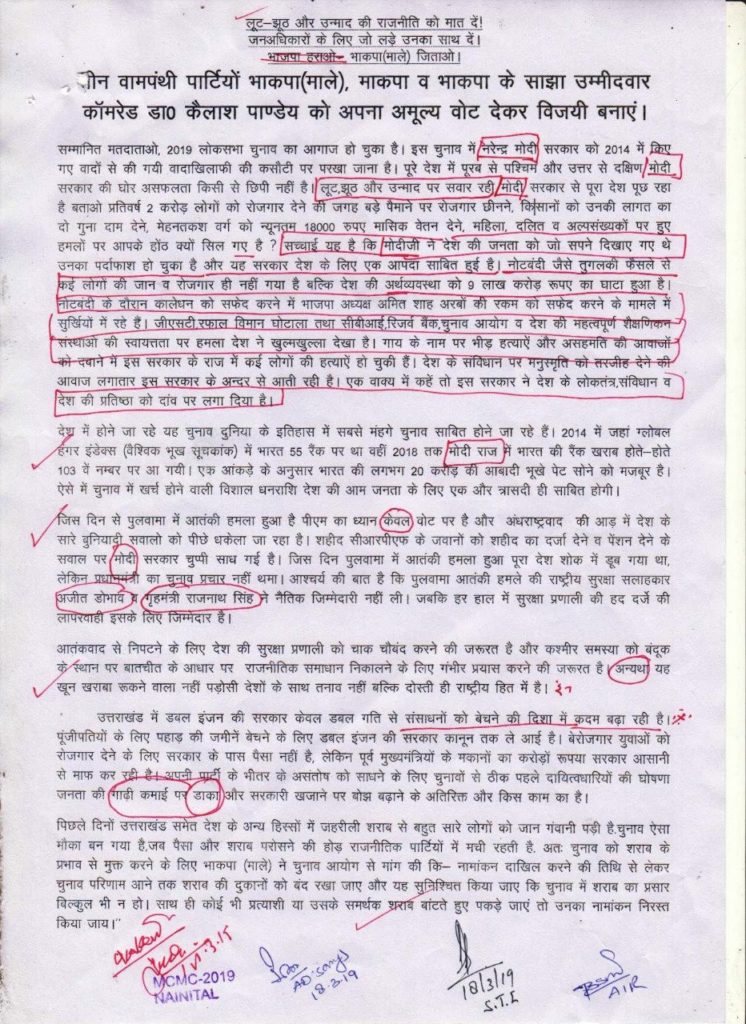 लूट-झूठ और उन्माद की राजनीति को मात दें!
जनअधिकारों के लिए जो लड़े उनका साथ दें।
भाजपा हराओ- भाकपा(माले) जिताओ।
तीन वामपंथी पार्टियों भाकपा(माले), माकपा व भाकपा के साझा उम्मीदवार
कॉमरेड डा0 कैलाश पाण्डेय को अपना अमूल्य वोट देकर विजयी बनाएं।
सम्मानित मतदाताओ, 2019 लोकसभा चुनाव का आगाज हो चुका है। इस चुनाव में नरेन्द्र मोदी सरकार को 2014 में किए
गए वादों से की गयी वादाखिलाफी की कसौटी पर परखा जाना है। पूरे देश में पूरब से पश्चिम और उत्तर से दक्षिण मोदी
सरकार की घोर असफलता किसी से छिपी नहीं है। लूट,झूठ और उन्माद पर सवार रही मोदी सरकार से पूरा देश पूछ रहा
है बताओ प्रतिवर्ष 2 करोड़ लोगों को रोजगार देने की जगह बड़े पैमाने पर रोजगार छीनने, किसानों को उनकी लागत का
दो गुना दाम देने, मेहनतकश वर्ग को न्यूनतम 18000 रुपए मासिक वेतन देने, महिला, दलित व अल्पसंख्यकों पर हुए
हमलों पर आपके होंठ क्यों सिल गए है ? सच्चाई यह है कि मोदीजी ने देश की जनता को जो सपने दिखाए गए थे
उनका पर्दाफाश हो चुका है और यह सरकार देश के लिए एक आपदा साबित हुई है। नोटबंदी जैसे तुगलकी फैसले से
कई लोगों की जान व रोजगार ही नहीं गया है बल्कि देश की अर्थव्यवस्था को 9 लाख करोड़ रूपए का घाटा हुआ है।
नोटबंदी के दौरान कालेधन को सफेद करने में भाजपा अध्यक्ष अमित शाह अरबों की रकम को सफेद करने के मामले में
सुर्खियों में रहे हैं। जीएसटी,रफाल विमान घोटाला तथा सीबीआई,रिजर्व बैंक,चुनाव आयोग व देश की महत्वपूर्ण शैक्षणिकन
संस्थाओं की स्वायत्तता पर हमला देश ने खुल्मखुल्ला देखा है। गाय के नाम पर भीड़ हत्याऐं और असहमति की आवाजों
को दबाने में इस सरकार के राज में कई लोगों की हत्याऐं हो चुकी हैं। देश के संविधान पर मनुस्मृति को तरजीह देने की
आवाज लगातार इस सरकार के अन्दर से आती रही है। एक वाक्य में कहें तो इस सरकार ने देश के लोकतंत्र,संविधान व
देश की प्रतिष्ठा को दांव पर लगा दिया है।
देश में होने जा रहे यह चुनाव दुनिया के इतिहास में सबसे मंहगे चुनाव साबित होने जा रहे हैं। 2014 में जहां ग्लोबल
हंगर इंडेक्स (वैश्विक भूख सूचकांक) में भारत 55 रैंक पर था वहीं 2018 तक मोदी राज में भारत की रैंक खराब होते-होते
103 वें नम्बर पर आ गयी। एक आंकड़े के अनुसार भारत की लगभग 20 करोड़ की आबादी भूखे पेट सोने को मजबूर है।
ऐसे में चुनाव में खर्च होने वाली विशाल धनराशि देश की आम जनता के लिए एक और त्रासदी ही साबित होगी।
जिस दिन से पुलवामा में आतंकी हमला हुआ है पीएम का ध्यान केवल वोट पर है और अंधराष्ट्रवाद की आड़ में देश के
सारे बुनियादी सवालो को पीछे धकेला जा रहा है। शहीद सीआरपीएफ के जवानों को शहीद का दर्जा देने व पेंशन देने के
सवाल पर मोदी सरकार चुप्पी साध गई है। जिस दिन पुलवामा में आतंकी हमला हुआ पूरा देश शोक में डूब गया था,
लेकिन प्रधानमंत्री का चुनाव प्रचार नहीं थमा। आश्चर्य की बात है कि पुलवामा आतंकी हमले की राष्ट्रीय सुरक्षा सलाहकार
अजीत डोभाव व गृहमंत्री राजनाथ सिंह ने नैतिक जिम्मेदारी नहीं ली। जबकि हर हाल में सुरक्षा प्रणाली की हद दर्जे की
लापरवाही इसके लिए जिम्मेदार है।
आतंकवाद से निपटने के लिए देश की सुरक्षा प्रणाली को चाक चौबंद करने की जरूरत है और कश्मीर समस्या को बंदूक
के स्थान पर बातचीत के आधार पर राजनीतिक समाधान निकालने के लिए गंभीर प्रयास करने की जरूरत है। अन्यथा यह
खून खराबा रूकने वाला नहीं पड़ोसी देशों के साथ तनाव नहीं बल्कि दोस्ती ही राष्ट्रीय हित में है।
उत्तराखंड में डबल इंजन की सरकार केवल डबल गति से संसाधनों को बेचने की दिशा में कदम बढ़ा रही है।
पूंजीपतियों के लिए पहाड़ की जमीनें बेचने के लिए डबल इंजन की सरकार कानून तक ले आई है। बेरोजगार युवाओं को
रोजगार देने के लिए सरकार के पास पैसा नहीं है, लेकिन पूर्व मुख्यमंत्रियों के मकानों का करोड़ों रूपया सरकार आसानी
से माफ कर रही है। अपनी पार्टी के भीतर के असंतोष को साधने के लिए चुनावों से ठीक पहले दायित्वधारियों की घोषणा
जनता की गाढ़ी कमाई पर डाका और सरकारी खजाने पर बोझ बढ़ाने के अतिरिक्त और किस काम का है।
पिछले दिनों उत्तराखंड समेत देश के अन्य हिस्सों में जहरीली शराब से बहुत सारे लोगों को जान गंवानी पड़ी है,चुनाव ऐसा
मौका बन गया है,जब पैसा और शराब परोसने की होड़ राजनीतिक पार्टियों में मची रहती है. अतः चुनाव को शराब के
प्रभाव से मुक्त करने के लिए भाकपा (माले) ने चुनाव आयोग से मांग की कि- नामांकन दाखिल करने की तिथि से लेकर
चुनाव परिणाम आने तक शराब की दुकानों को बंद रखा जाए और यह सुनिश्चित किया जाए कि चुनाव में शराब का प्रसार
बिल्कुल भी न हो। साथ ही कोई भी प्रत्याशी या उसके समर्थक शराब बांटते हुए पकड़े जाएं तो उनका नामांकन निरस्त
किया जाय।"
MCMC-2019
NAINITAL
18.3.19
18/3/19
S.T.I
AIR